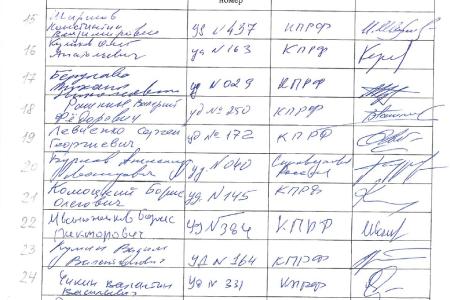 номер
15 Миронов
Константин
Владимирович уд № 437 КПРФ
16 Куликов Олег
Анатольевич уд № 163 КПРФ
17 уд № 029 КПРФ
18 Рашкин Валерий
Фёдорович уд № 250 КПРФ
19 Левченко Сергей
Георгиевич уд № 172 КПРФ
20 Бурков Александр
Леонидович уд. № 040 Справедливая
Россия
21 Комоцкий Борис
Олегович уд. № 145 КПРФ
22 Борис
Викторович УД № 384 КПРФ
23 Кумин Вадим
Валентинович УД № 164 КПРФ
24 Чикин Валентин
Васильевич уд № 331 КПРФ